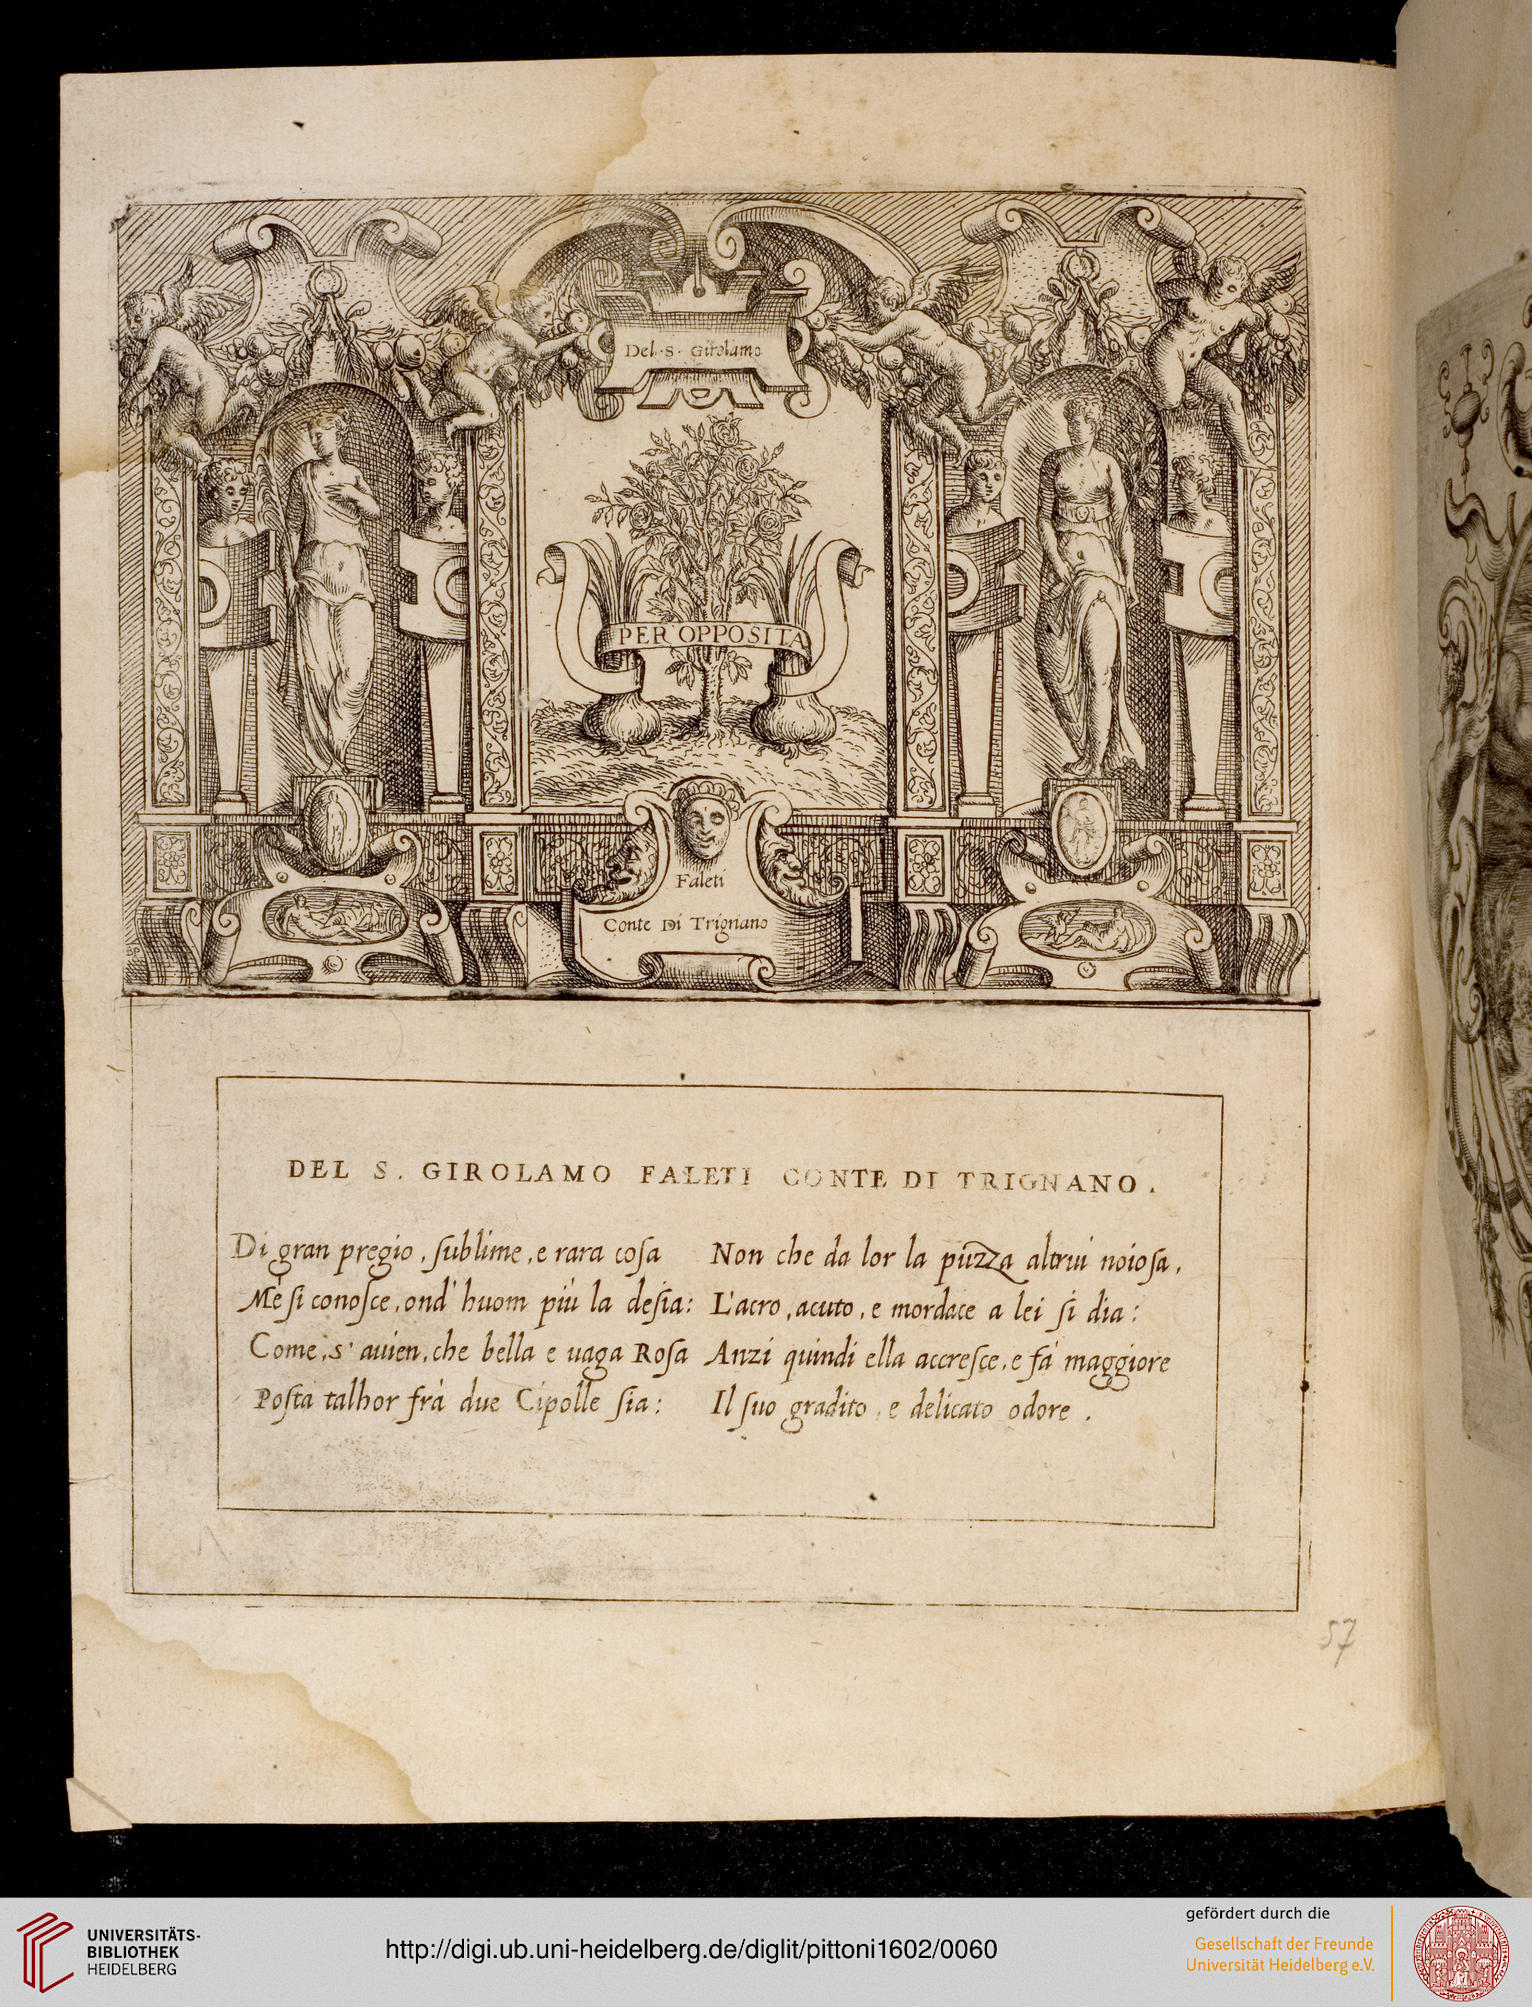 Del · S · Girolamo
PER OPPOSITA
Faleti
Conte Di Trignano
DEL S. GIROLAMO FALETI CONTE DI TRIGNANO.
Di gran pregio, ſublime, e rara coſa
Me ſi conoſce, ond' huom più la deſia:
Come, s' auien, che bella e uaga Roſa
Poſta talhor frà due Cipolle ſia:
Non che da lor la puzza altrui noioſa,
L'acro, acuto, e mordace a lei ſi dia:
Anzi quindi ella accreſce, e fà maggiore
Il ſuo gradito, e delicato odore.
57
UNIVERSITÄTS-
BIBLIOTHEK
HEIDELBERG
http://digi.ub.uni-heidelberg.de/diglit/pittoni1602/0060
gefördert durch die
Gesellschaft der Freunde
Universität Heidelberg e.V.